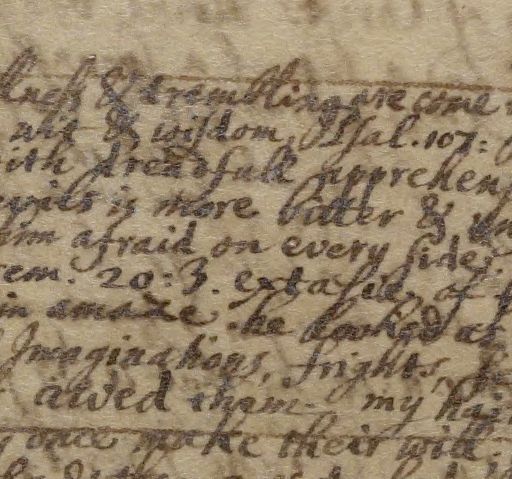 & trembling are come
wit & wisdom, Psal. 107:
with dreadfull apprehen
is more bitter & un
him afraid on every side.
em. 20:3. extasie, of
in amaze. he looked as
Imaginations, frights, &
awed them. my hair
once make their will.